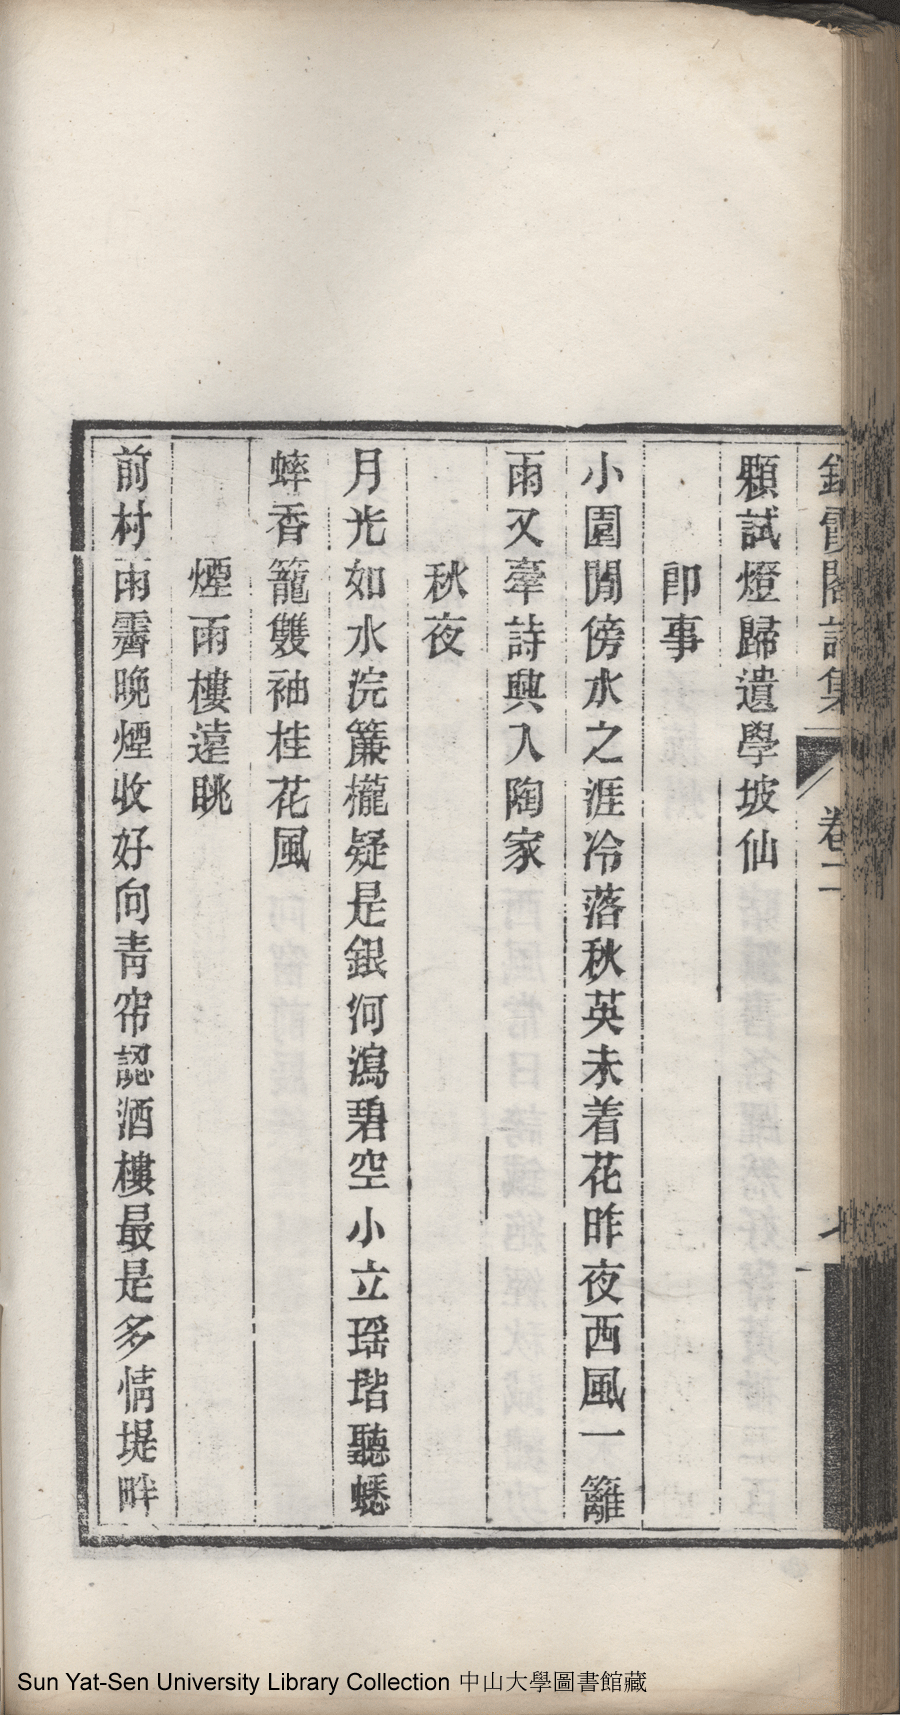 霞閣詩集 卷二
顆試燈歸遺學坡仙
即事
小園閒傍水之涯冷落秋英未着花昨夜西風一籬
雨又牽詩興入陶家
秋夜
月光如水浣簾櫳疑是銀河瀉碧空小立瑶堦聽蟋
蟀香籠雙袖桂花風
煙雨樓遠眺
前村雨霽晚煙收好向靑帘認酒樓最是多情堤畔
Sun Yat-Sen University Library Collection 中山大學圖書館藏